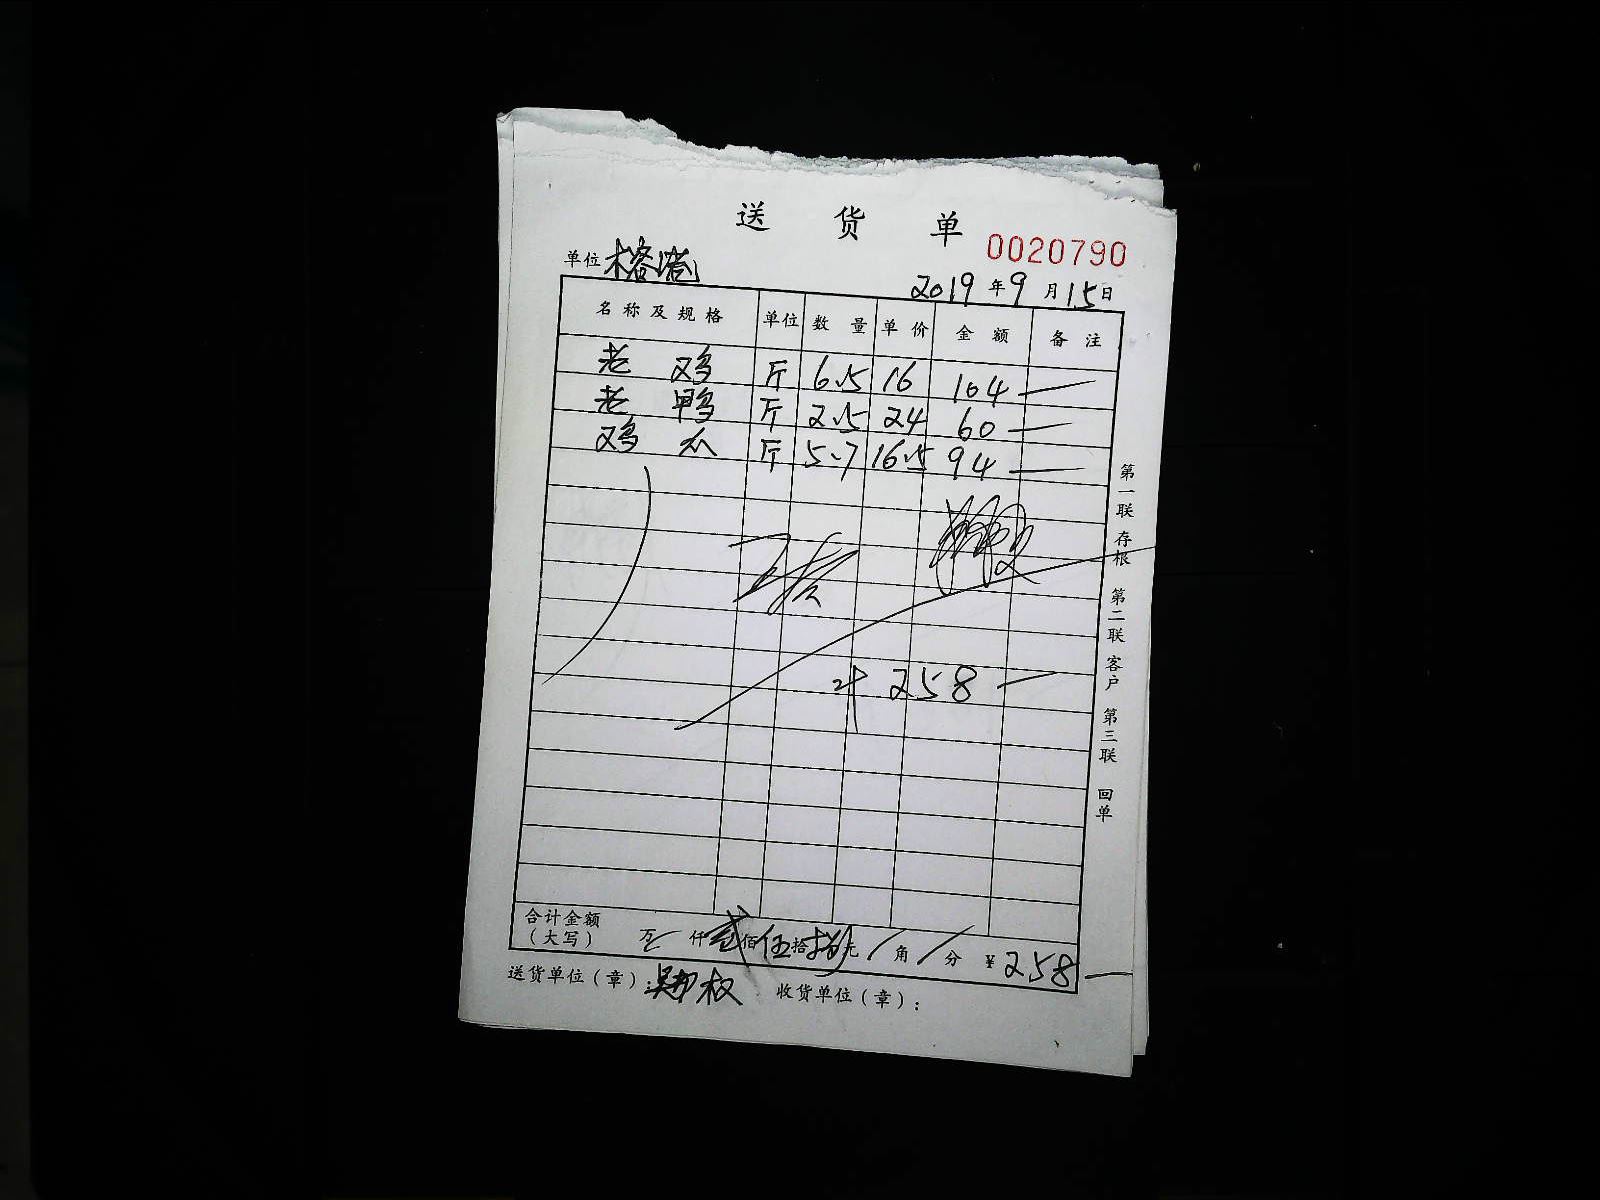 送 货 单
0020790
单位 榕港
2019年9月15日
名称及规格 单位 数量 单价 金额 备注
老鸡 斤 6.5 16 104 —
老鸭 斤 2.5 24 60 —
鸡 斤 5.7 16.5 94 —
258 —
第一联 存根 第二联 客户 第三联 回单
合计金额（大写） 万 仟 贰佰 伍拾 捌元 / 角 / 分 ¥258 —
送货单位（章）： 收货单位（章）：